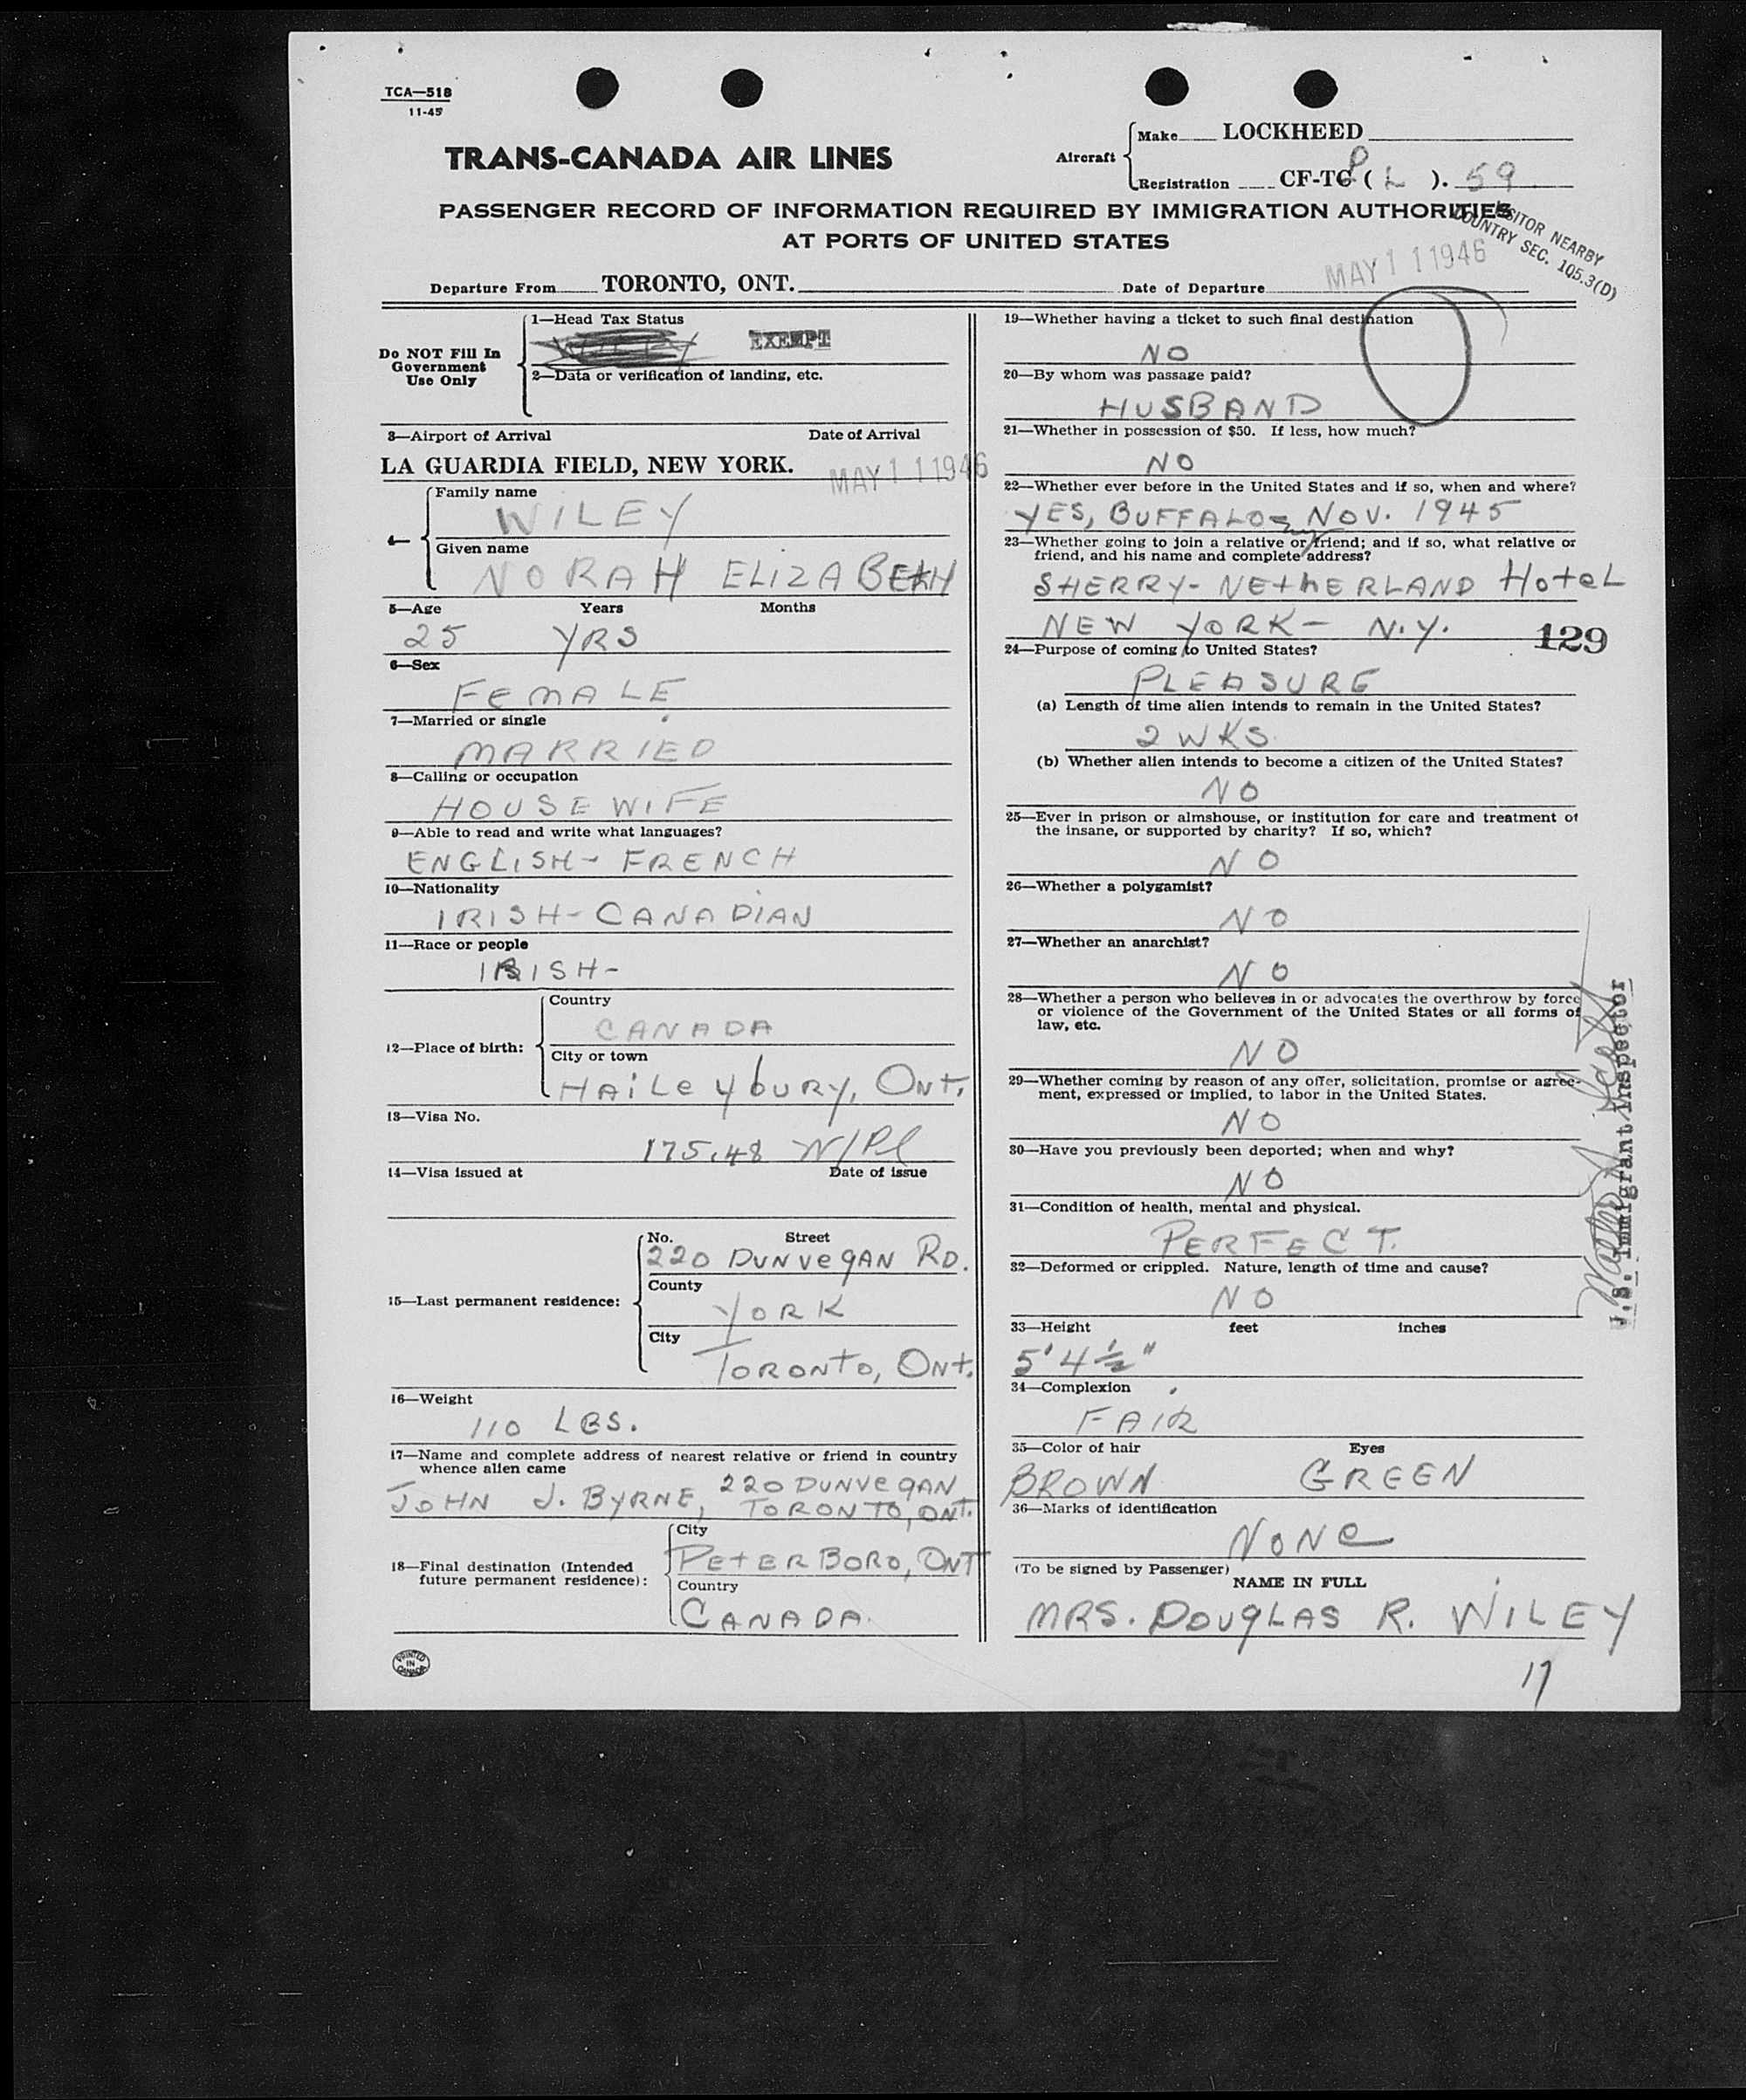 TCA—518
11-45
TRANS-CANADA AIR LINES
Aircraft
Make LOCKHEED
Registration CF-TC P ( L ). 59
PASSENGER RECORD OF INFORMATION REQUIRED BY IMMIGRATION AUTHORITIES
AT PORTS OF UNITED STATES
VISITOR NEARBY
COUNTRY SEC. 105.3(D)
Departure From TORONTO, ONT.
Date of Departure MAY 11 1946
Do NOT Fill In
Government
Use Only
1—Head Tax Status
EXEMPT
2—Data or verification of landing, etc.
3—Airport of Arrival Date of Arrival
LA GUARDIA FIELD, NEW YORK. MAY 11 1946
4—
Family name
WILEY
Given name
NORAH ELIZABEtH
5—Age Years Months
25 YRS
6—Sex
FEMALE
7—Married or single
MARRIED
8—Calling or occupation
HOUSEWIFE
9—Able to read and write what languages?
ENGLISH - FRENCH
10—Nationality
IRISH-CANADIAN
11—Race or people
IRISH-
12—Place of birth:
Country
CANADA
City or town
HAiLeybURY, ONT.
13—Visa No.
175.48
14—Visa issued at Date of issue
15—Last permanent residence:
No. Street
220 DUNVegAN RD.
County
YORK
City
TORONTO, ONT.
16—Weight
110 LBS.
17—Name and complete address of nearest relative or friend in country
whence alien came
JOHN J. BYRNE, 220 DUNVegAN
TORONTO, ONT.
18—Final destination (Intended
future permanent residence):
City
PETERBORO, ONT
Country
CANADA.
PRINTED
IN
CANADA
19—Whether having a ticket to such final destination
NO
20—By whom was passage paid?
HUSBAND
21—Whether in possession of $50. If less, how much?
NO
22—Whether ever before in the United States and if so, when and where?
YES, BUFFALO - NOV. 1945
23—Whether going to join a relative or friend; and if so, what relative or
friend, and his name and complete address?
SHERRY-NEtHERLAND HoteL
NEW YORK - N.Y.
129
24—Purpose of coming to United States?
PLEASURE
(a) Length of time alien intends to remain in the United States?
2 WKS.
(b) Whether alien intends to become a citizen of the United States?
NO
25—Ever in prison or almshouse, or institution for care and treatment of
the insane, or supported by charity? If so, which?
NO
26—Whether a polygamist?
NO
27—Whether an anarchist?
NO
28—Whether a person who believes in or advocates the overthrow by force
or violence of the Government of the United States or all forms of
law, etc.
NO
29—Whether coming by reason of any offer, solicitation, promise or agree-
ment, expressed or implied, to labor in the United States.
NO
30—Have you previously been deported; when and why?
NO
31—Condition of health, mental and physical.
PERFECT.
32—Deformed or crippled. Nature, length of time and cause?
NO
33—Height feet inches
5' 4 ½"
34—Complexion
FAIR
35—Color of hair Eyes
BROWN GREEN
36—Marks of identification
NONe
(To be signed by Passenger)
NAME IN FULL
MRS. DOUgLAS R. WILEY
U.S. Immigrant Inspector
17